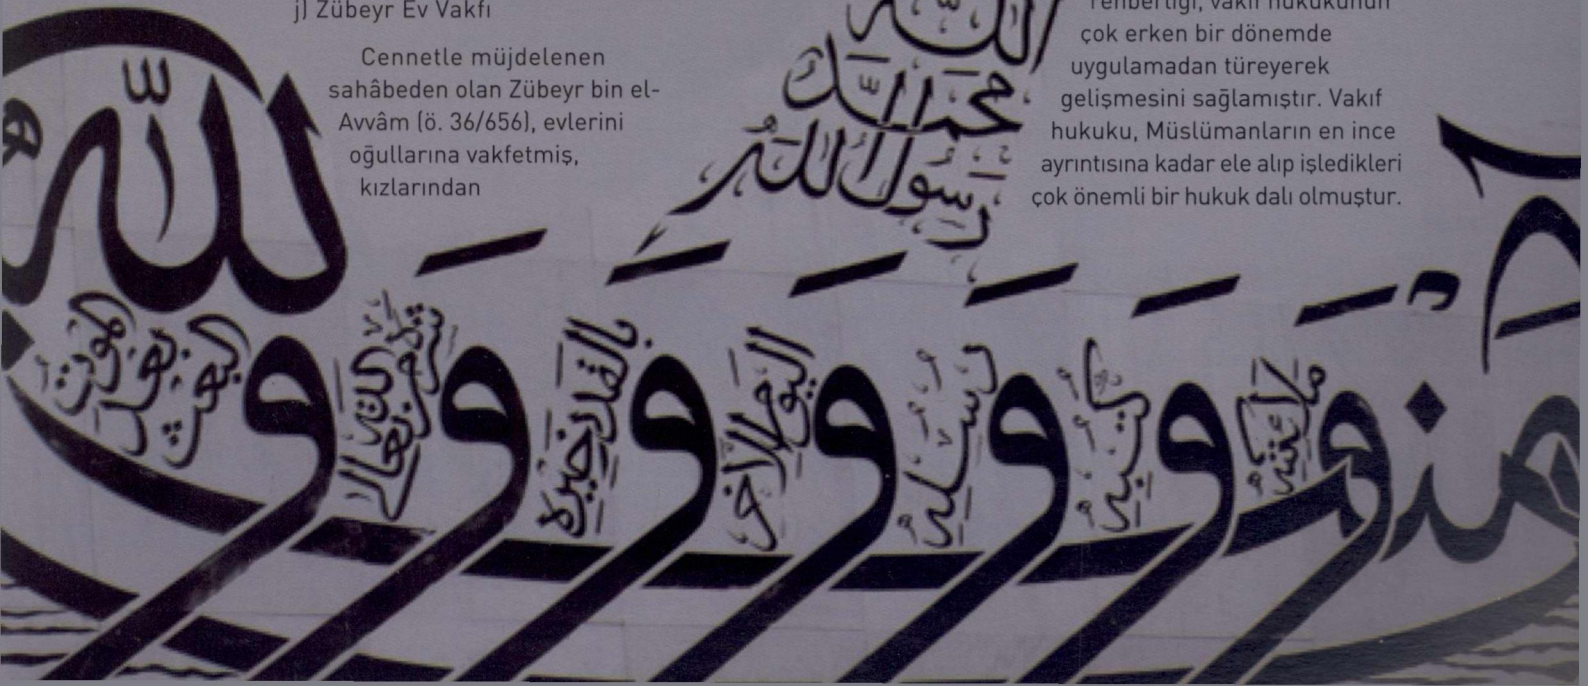 j) Zübeyr Ev Vakfı
Cennetle müjdelenen
sahâbeden olan Zübeyr bin el-
Avvâm (ö. 36/656), evlerini
oğullarına vakfetmiş,
kızlarından
rehberliği, vakıf hukukunun
çok erken bir dönemde
uygulamadan türeyerek
gelişmesini sağlamıştır. Vakıf
hukuku, Müslümanların en ince
ayrıntısına kadar ele alıp işledikleri
çok önemli bir hukuk dalı olmuştur.
الله
محمد
رسول الله
و ملائكته
و كتبه
و رسله
و اليوم الاخر
و بالقدر خيره
و شره من الله تعالى
و البعث بعد الموت
الله